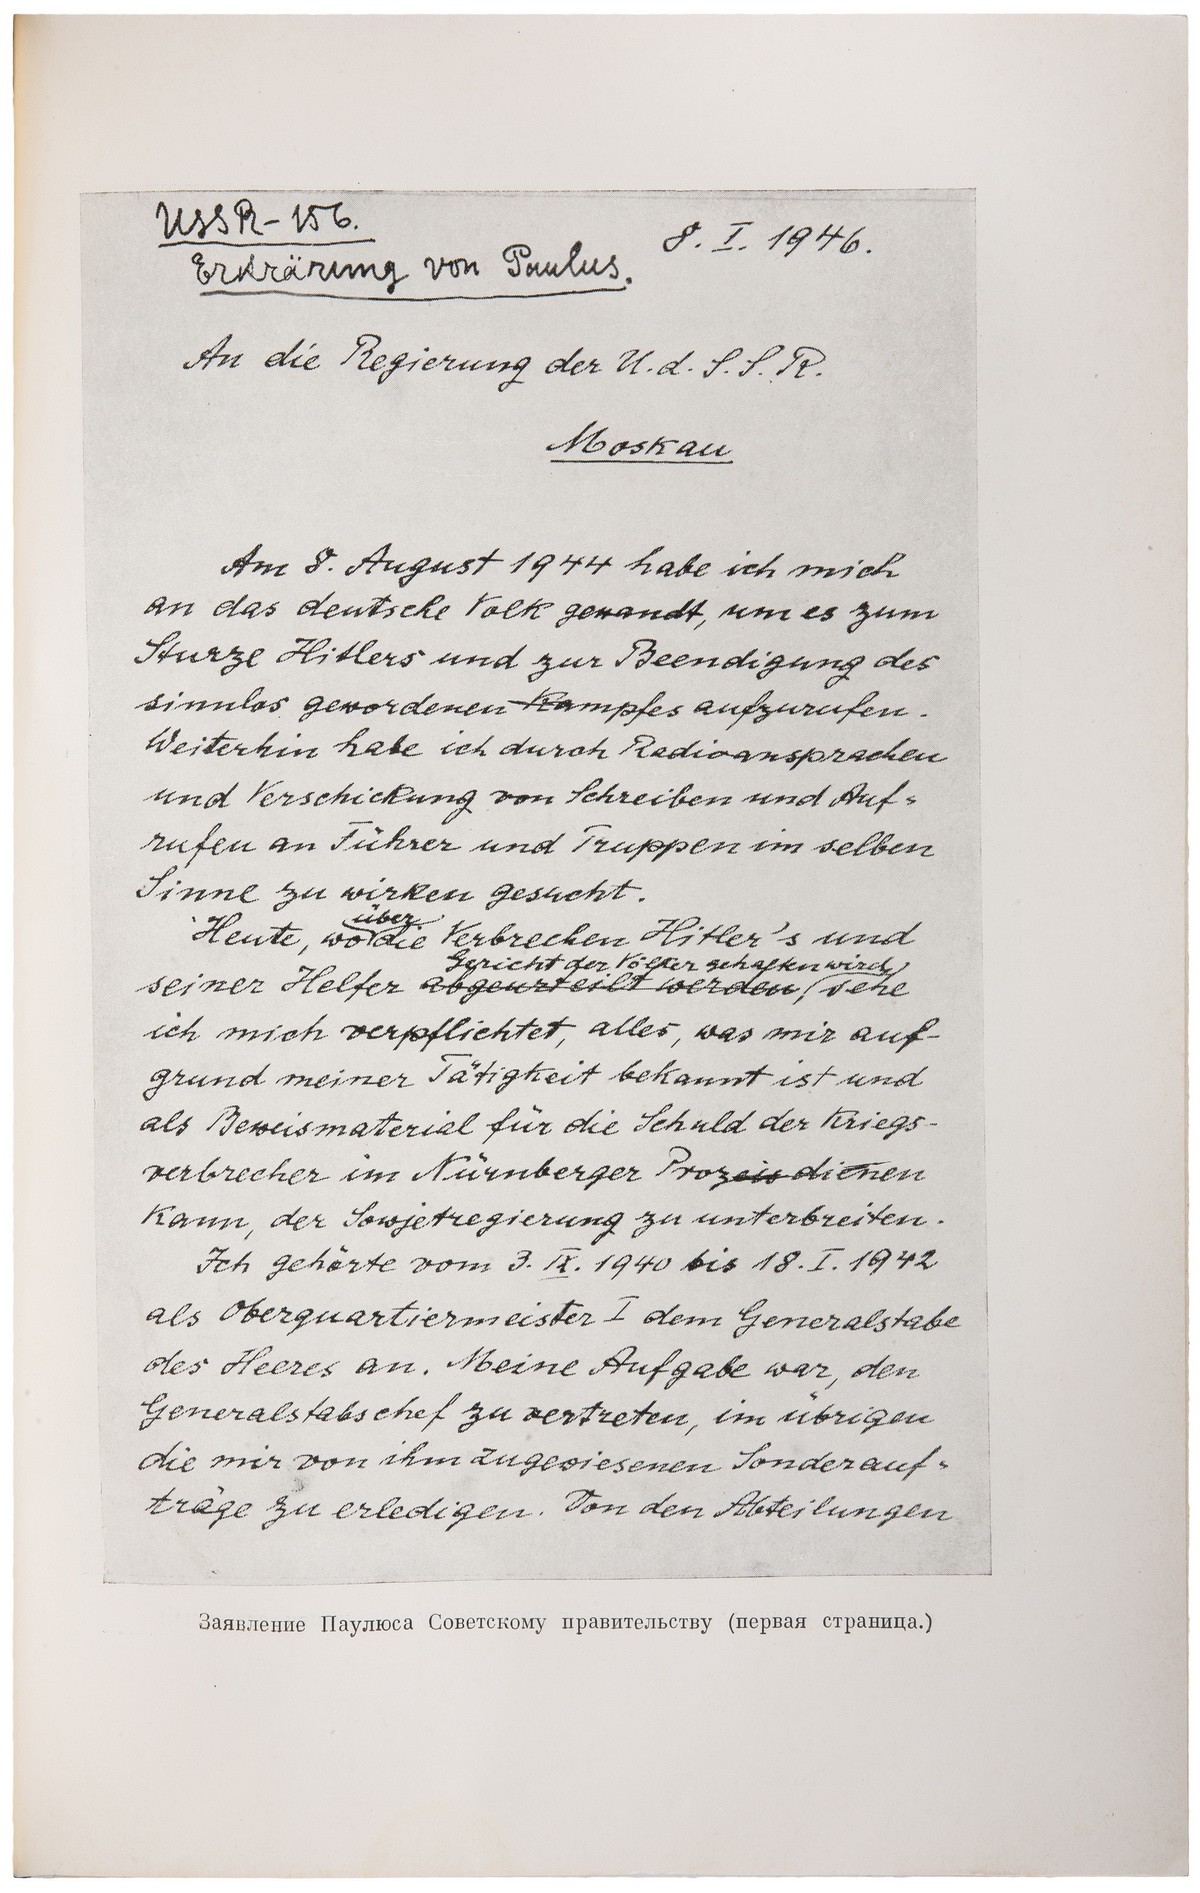 USSR-156.
8. I. 1946.
Erklärung von Paulus.
An die Regierung der U.d.S.S.R.
Moskau
Am 8. August 1944 habe ich mich
an das deutsche Volk gewandt, um es zum
Sturze Hitlers und zur Beendigung des
sinnlos gewordenen Kampfes aufzurufen.
Weiterhin habe ich durch Radioansprachen
und Verschickung von Schreiben und Auf-
rufen an Führer und Truppen im selben
Sinne zu wirken gesucht.
über
Heute, wo die Verbrechen Hitler's und
Gericht der Völker gehalten wird,
seiner Helfer abgeurteilt werden, sehe
ich mich verpflichtet, alles, was mir auf-
grund meiner Tätigkeit bekannt ist und
als Beweismaterial für die Schuld der Kriegs-
verbrecher im Nürnberger Prozeis dienen
kann, der Sowjetregierung zu unterbreiten.
Ich gehörte vom 3. IX. 1940 bis 18. I. 1942
als Oberquartiermeister I dem Generalstabe
des Heeres an. Meine Aufgabe war, den
Generalstabschef zu vertreten, im übrigen
die mir von ihm zugewiesenen Sonderauf-
träge zu erledigen. Von den Abteilungen
Заявление Паулюса Советскому правительству (первая страница.)